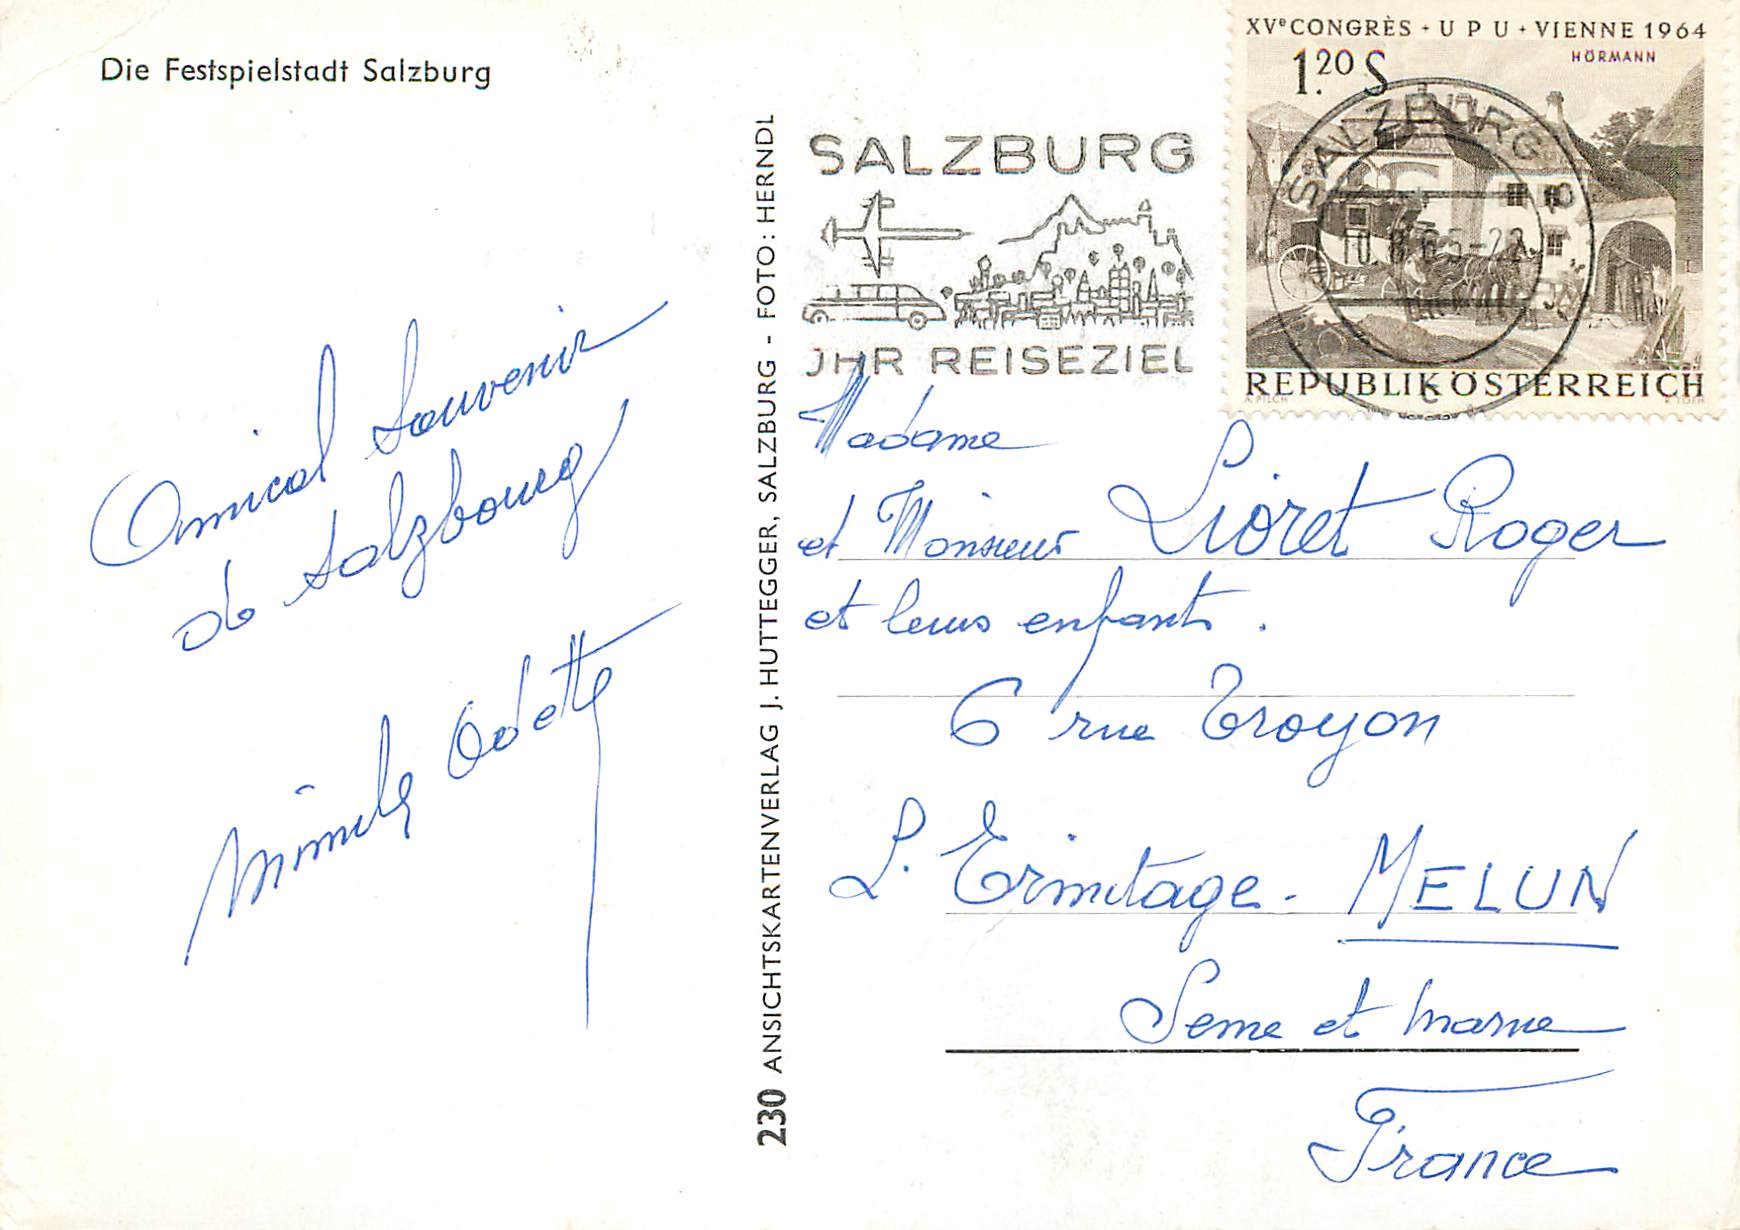 Die Festspielstadt Salzburg
Amical Souvenir
de Salzbourg
Odette
230 ANSICHTSKARTENVERLAG J. HUTTEGGER, SALZBURG - FOTO: HERNDL
SALZBURG
JHR REISEZIEL
XVe CONGRÈS · U P U · VIENNE 1964
1.20 S
HÖRMANN
SALZBURG
REPUBLIK ÖSTERREICH
A. PILCH
K. TOTH
Madame
et Monsieur Lioret Roger
et leurs enfants.
6 rue Troyon
L'Ermitage - MELUN
Seine et Marne
France